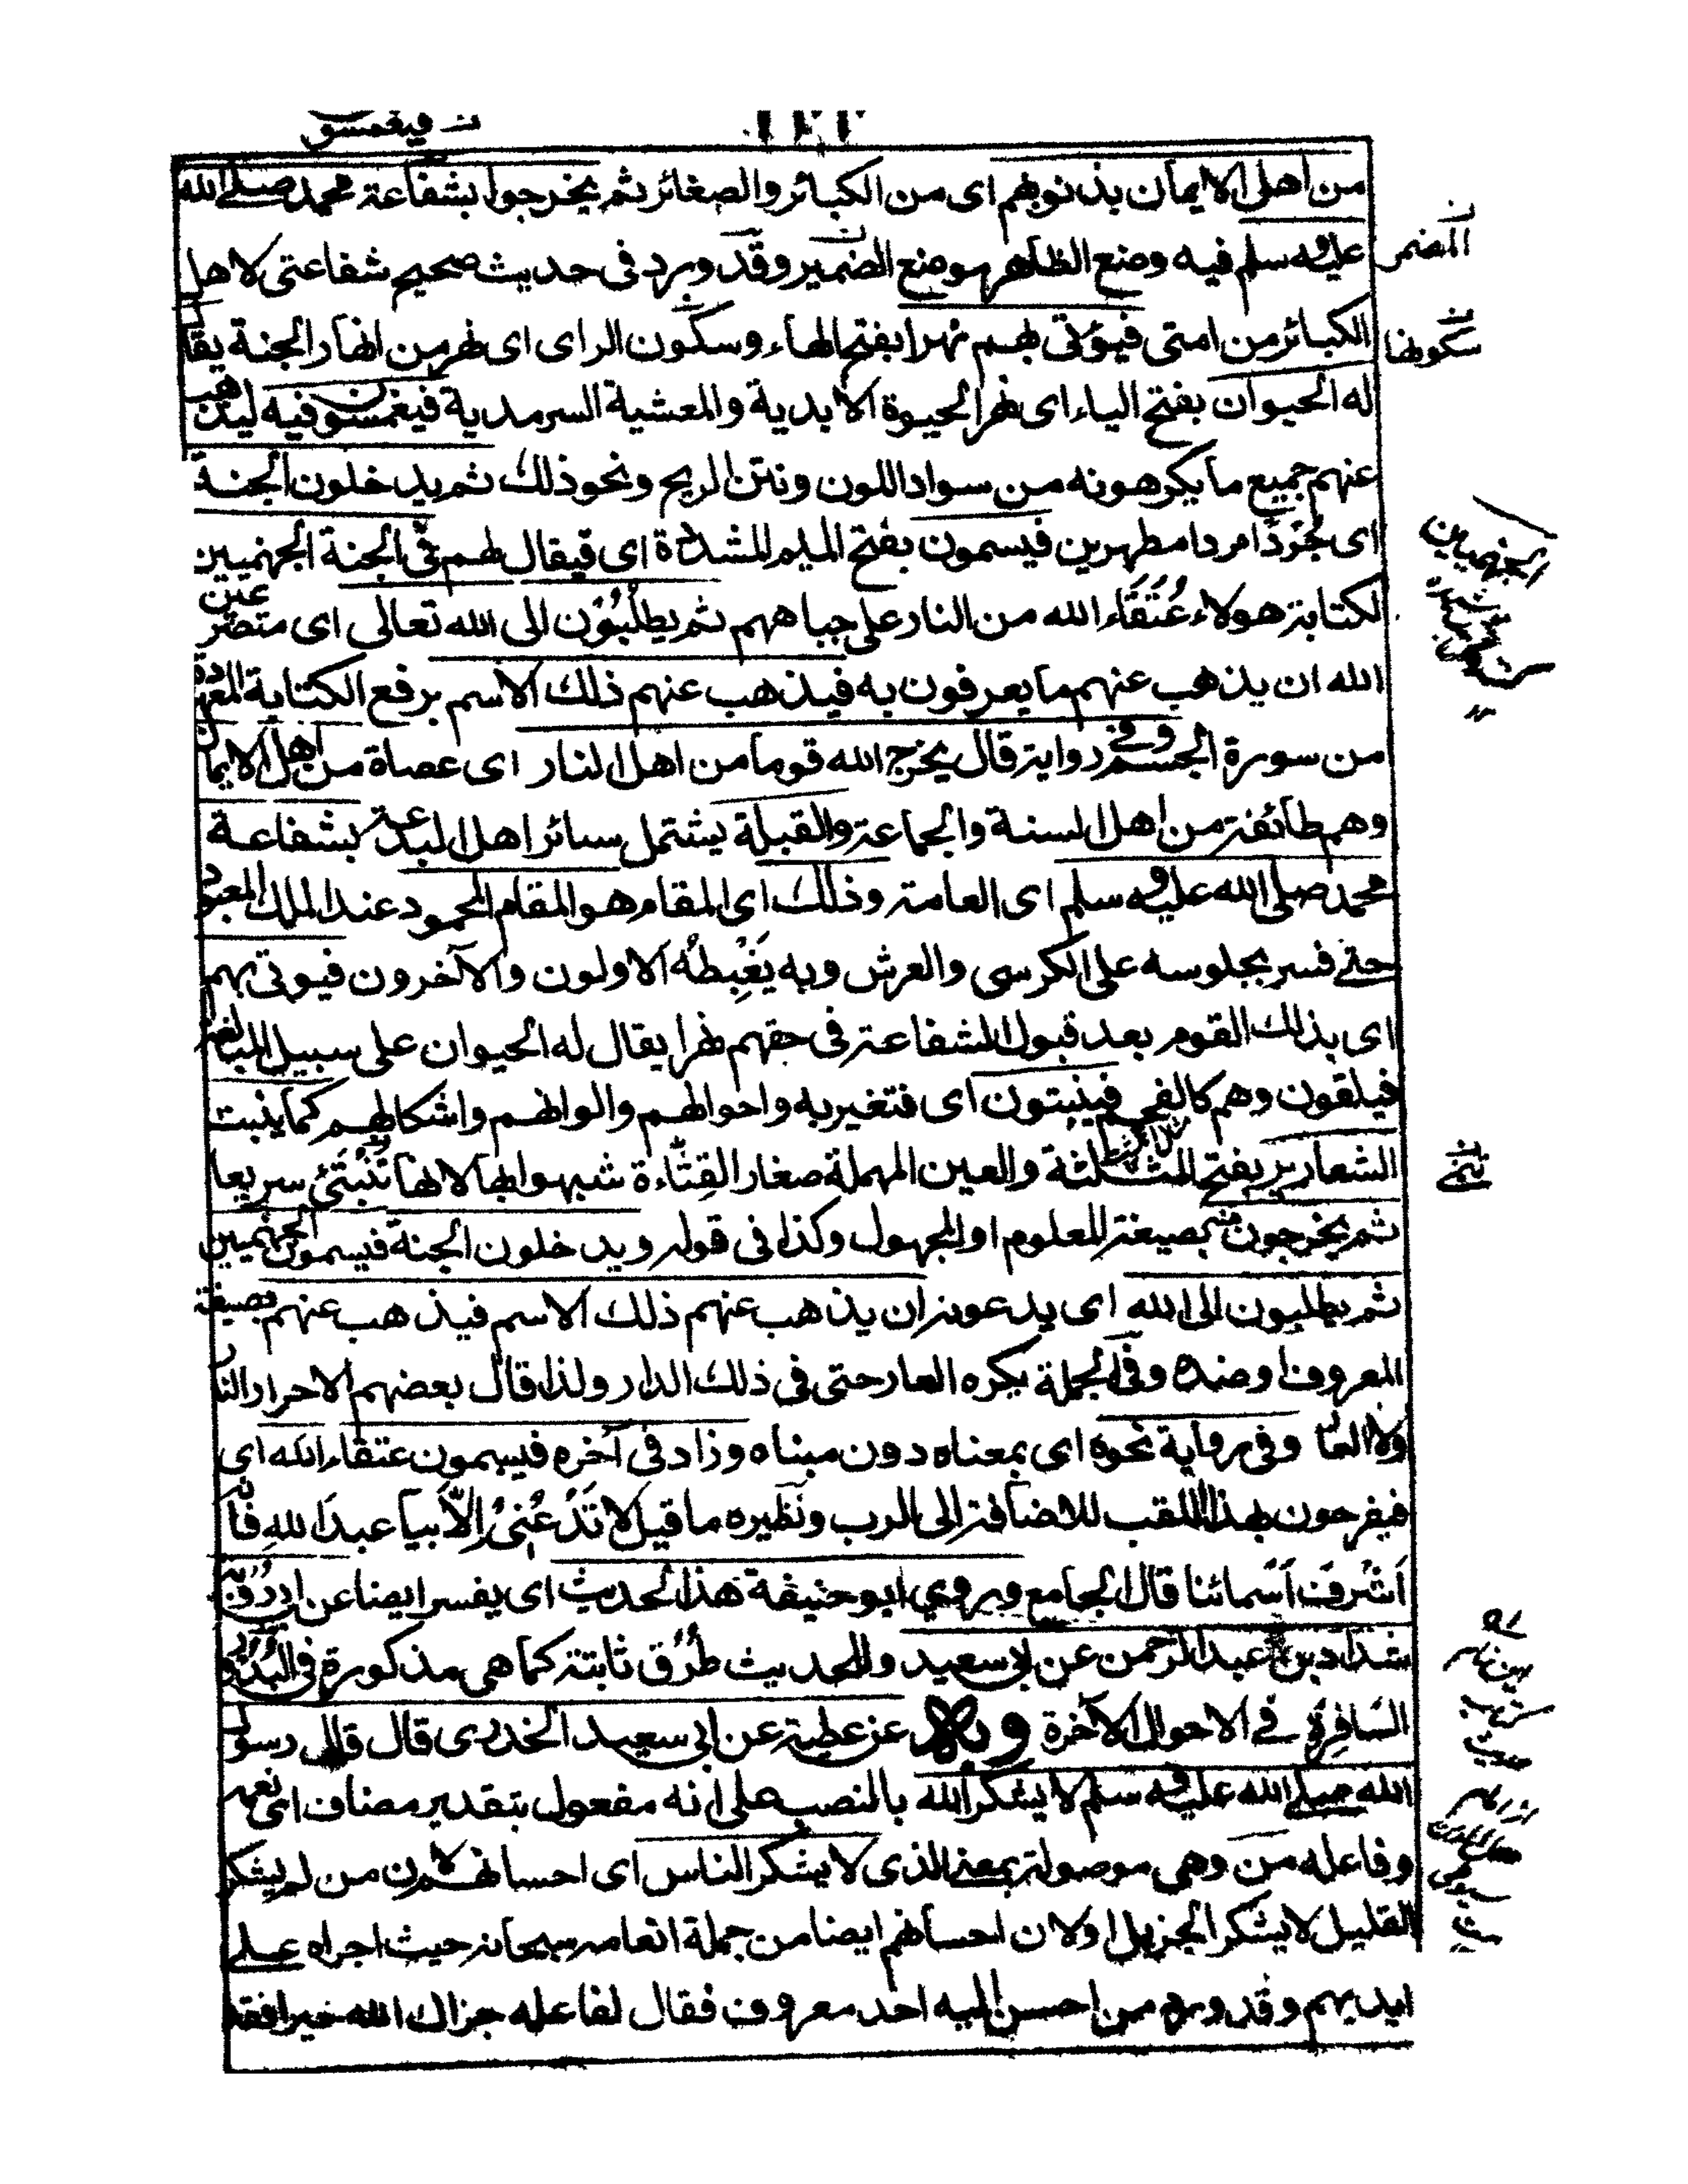 فيغمسون
من اهل الايمان بذنوبهم اى من الكبائر والصغائر ثم يخرجوا بشفاعة محمد صلى الله
عليه وسلم فيه وضع الظاهر موضع الضمير وقد ورد فى حديث صحيح شفاعتى لاهل
المضمر
الكبائر من امتى فيؤتى بهم نهرا بفتح الهاء وسكون الراى اى نهر من انهار الجنة يقال
سكونها
له الحيوان بفتح الياء اى نهر الحيوة الابدية والمعشية السرمدية فيغمسون فيه ليذهب
عنهم جميع ما يكرهونه من سواد اللون ونتن الريح ونحو ذلك ثم يدخلون الجنة
اى جُرْدًا مردا مطهرين فيسمون بفتح الميم المشددة اى فيقال لهم فى الجنة الجهنميين
لكتابة هولاء عُتَقَاء الله من النار على جباههم ثم يطلبون الى الله تعالى اى متضرعين
الله ان يذهب عنهم ما يعرفون به فيذهب عنهم ذلك الاسم برفع الكتابة المعهودة
من سورة الجسم وفى رواية قال يخرج الله قوما من اهل النار اى عصاة من اهل الايمان
وهم طائفة من اهل السنة والجماعة والقبلة يشتمل سائر اهل البدعة بشفاعة
محمد صلى الله عليه وسلم اى العامة وذلك اى المقام هو المقام المحمود عند الملك المعبود
حتى فسر بجلوسه على الكرسى والعرش وبه يَغْبِطُه الاولون والآخرون فيوتى بهم
اى بذلك القوم بعد قبول الشفاعة فى حقهم نهرا يقال له الحيوان على سبيل المبالغة
فيلقون وهم كالفحم فينبتون اى فتغير به واحوالهم والوانهم واشكالهم كما ينبت
الشعارير بفتح المثلثة والعين المهملة صغار القِثّاءة شبهوا بها لانها تَنْبُتُ سريعا
ثم يخرجون منه بصيغة المعلوم او المجهول وكذا فى قوله ويدخلون الجنة فيسمون الجهنميين
ثم يطلبون الى الله اى يدعونه ان يذهب عنهم ذلك الاسم فيذهب عنهم بصيغة
المعروف او ضده وفى الجملة يكره العار حتى فى ذلك الدار ولذا قال بعضهم الاحرار النار
ولا العار وفى رواية نحوه اى بمعناه دون مبناه وزاد فى آخره فيسمون عتقاء الله اى
فيفرحون بهذا اللقب للاضافة الى الرب ونظيره ما قيل لا تَدْعُنِىْ اِلاّ بيا عبدَ اللهِ فانه
اَشْرَفُ اَسْمائنا قال الجامع وروى ابو حنيفة هذا الحديث اى يفسر ايضا عن ابى رُوْبَة
شداد بن عبد الرحمن عن ابى سعيد وللحديث طُرُق ثابتة كما هى مذكورة فى البُدُور
السّافِرَة فى الاحوال الآخرة وبه عن عطية عن ابى سعيد الخدرى قال قال رسول
الله صلى الله عليه وسلم لا يشكر الله بالنصب على انه مفعول بتقدير مضاف اى نعمه
وفاعله من وهى موصولة بمعنى الذى لا يشكر الناس اى احسانهم لان من لم يشكر
القليل لا يشكر الجزيل اولان احسانهم ايضا من جملة انعامه سبحانه حيث اجراه على
ايديهم وقد ورد من احسن اليه احد معروف فقال لفاعله جزاك الله خيرا فقد